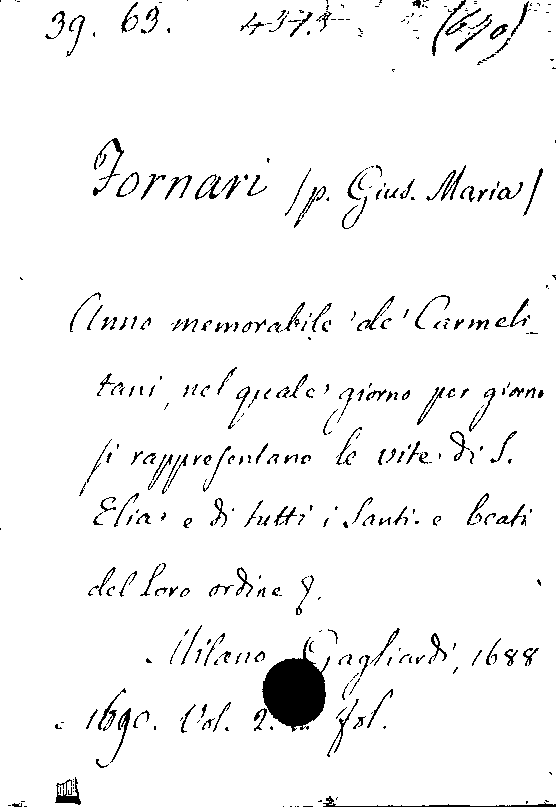 39. 63. 4373 (670)
Fornari /p. Gius. Maria/
Anno memorabile de' Carmeli_
tani, nel quale giorno per giorno
si rappresentano le vite di S.
Elia, e di tutti i Santi e beati
del Loro ordine
Milano Gagliardi, 1688
e 1690. Vol. 2. fol.